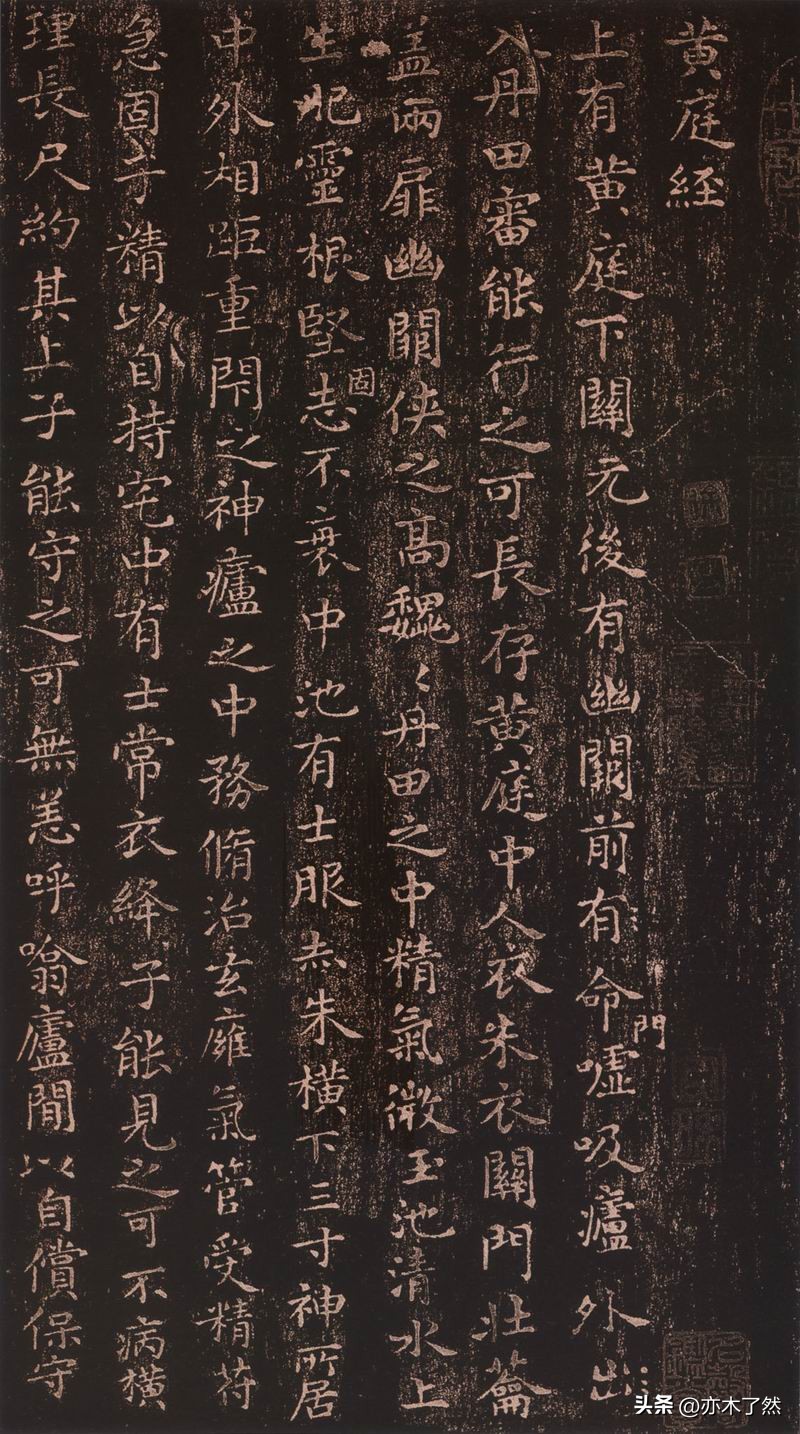 黄庭經
上有黄庭下關元後有幽闕前有命門噓吸廬外出
入丹田審能行之可長存黄庭中人衣朱衣關門壯蘥
盖兩扉幽闕俠之高魏〻丹田之中精氣微玉池清水上
生肥靈根堅固志不衰中池有士服赤朱橫下三寸神所居
中外相距重閇之神廬之中務脩治玄癰氣管受精苻
急固子精以自持宅中有士常衣絳子能見之可不病橫
理長尺約其上子能守之可無恙呼噏廬間以自償保守
头条 @亦木了然